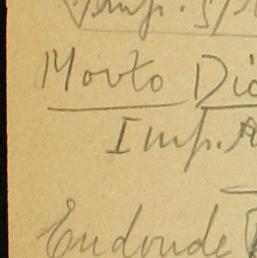 Imp. S/
Morto Dio
Imp. A
Endoude